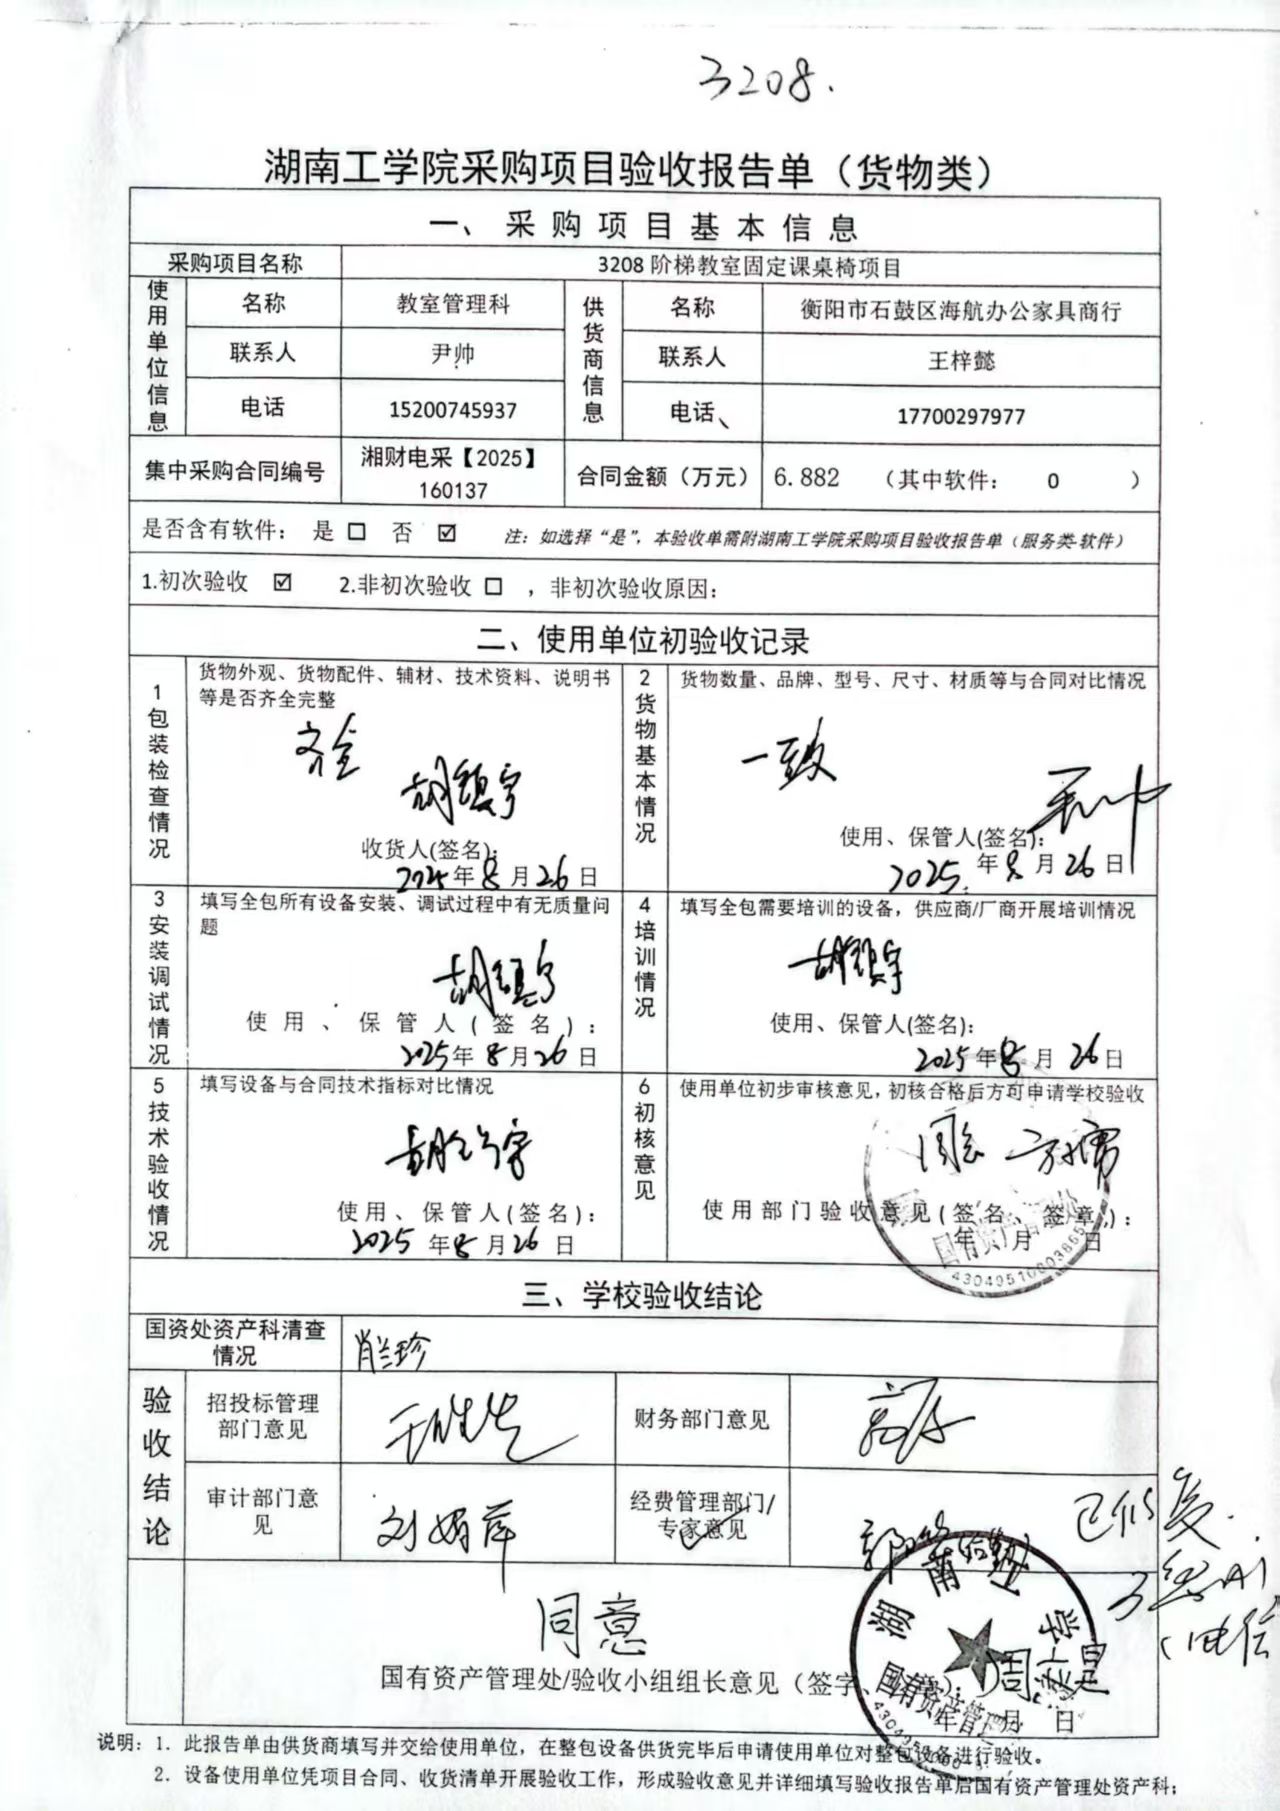 3208.
湖南工学院采购项目验收报告单（货物类）
一、采购项目基本信息
采购项目名称 3208 阶梯教室固定课桌椅项目
使用单位信息 名称 教室管理科 供货商信息 名称 衡阳市石鼓区海航办公家具商行
联系人 尹帅 联系人 王梓懿
电话 15200745937 电话 17700297977
集中采购合同编号 湘财电采【2025】160137 合同金额（万元） 6.882 （其中软件： 0 ）
是否含有软件： 是 □ 否 ☑ 注：如选择“是”，本验收单需附湖南工学院采购项目验收报告单（服务类-软件）
1.初次验收 ☑ 2.非初次验收 □ ，非初次验收原因：
二、使用单位初验收记录
1 包装检查情况
货物外观、货物配件、辅材、技术资料、说明书
等是否齐全完整
齐全
胡镇宇
收货人(签名):
2025年8月26日
2 货物基本情况
货物数量、品牌、型号、尺寸、材质等与合同对比情况
一致
使用、保管人(签名):
2025.年8月26日
3 安装调试情况
填写全包所有设备安装、调试过程中有无质量问
题
胡镇宇
使用、保管人(签名):
2025年8月26日
4 培训情况
填写全包需要培训的设备，供应商/厂商开展培训情况
胡镇宇
使用、保管人(签名):
2025年8月26日
5 技术验收情况
填写设备与合同技术指标对比情况
使用、保管人(签名):
2025年8月26日
6 初核意见
使用单位初步审核意见，初核合格后方可申请学校验收
同意
使用部门验收意见(签名、签章):
年 月 日
国有资产管理处
三、学校验收结论
国资处资产科清查
情况
肖兰珍
验收结论
招投标管理
部门意见
财务部门意见
审计部门意
见
刘娟萍
经费管理部门/
专家意见
已修复.
同意
国有资产管理处/验收小组组长意见（签字、
月 日
说明：1. 此报告单由供货商填写并交给使用单位，在整包设备供货完毕后申请使用单位对整包设备进行验收。
2. 设备使用单位凭项目合同、收货清单开展验收工作，形成验收意见并详细填写验收报告单后国有资产管理处资产科；